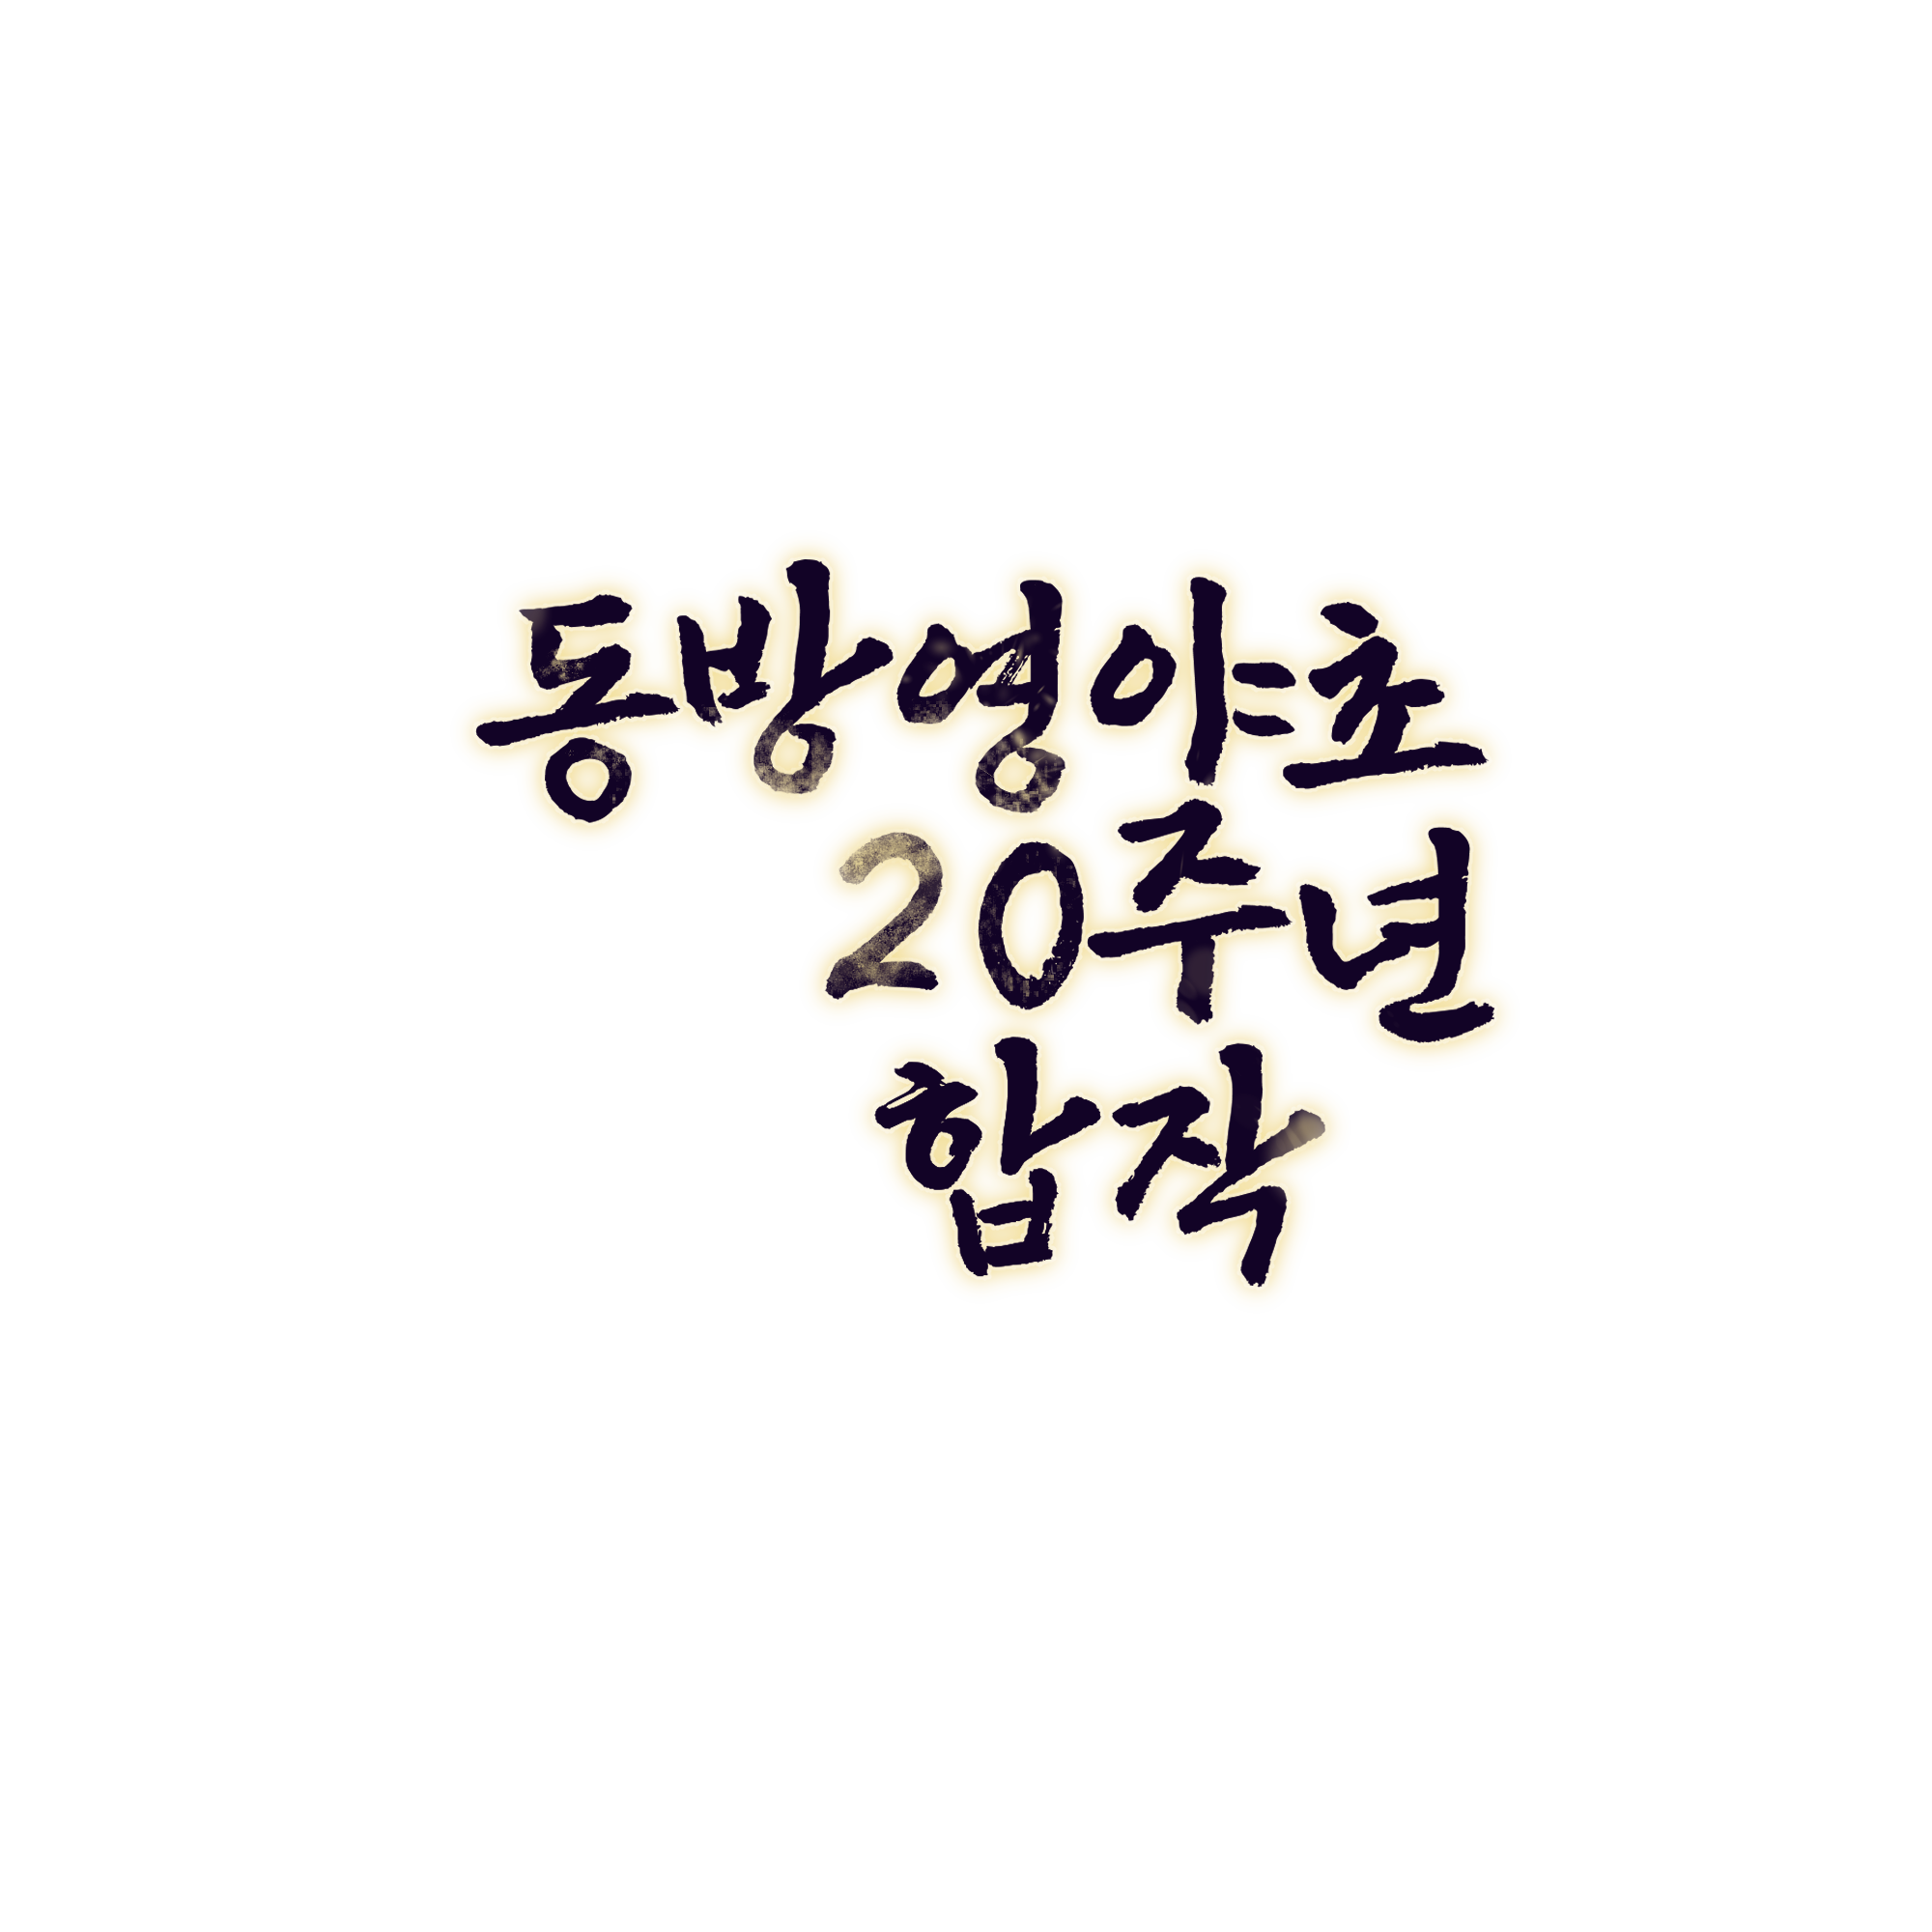 동방영야초
20주년
합작